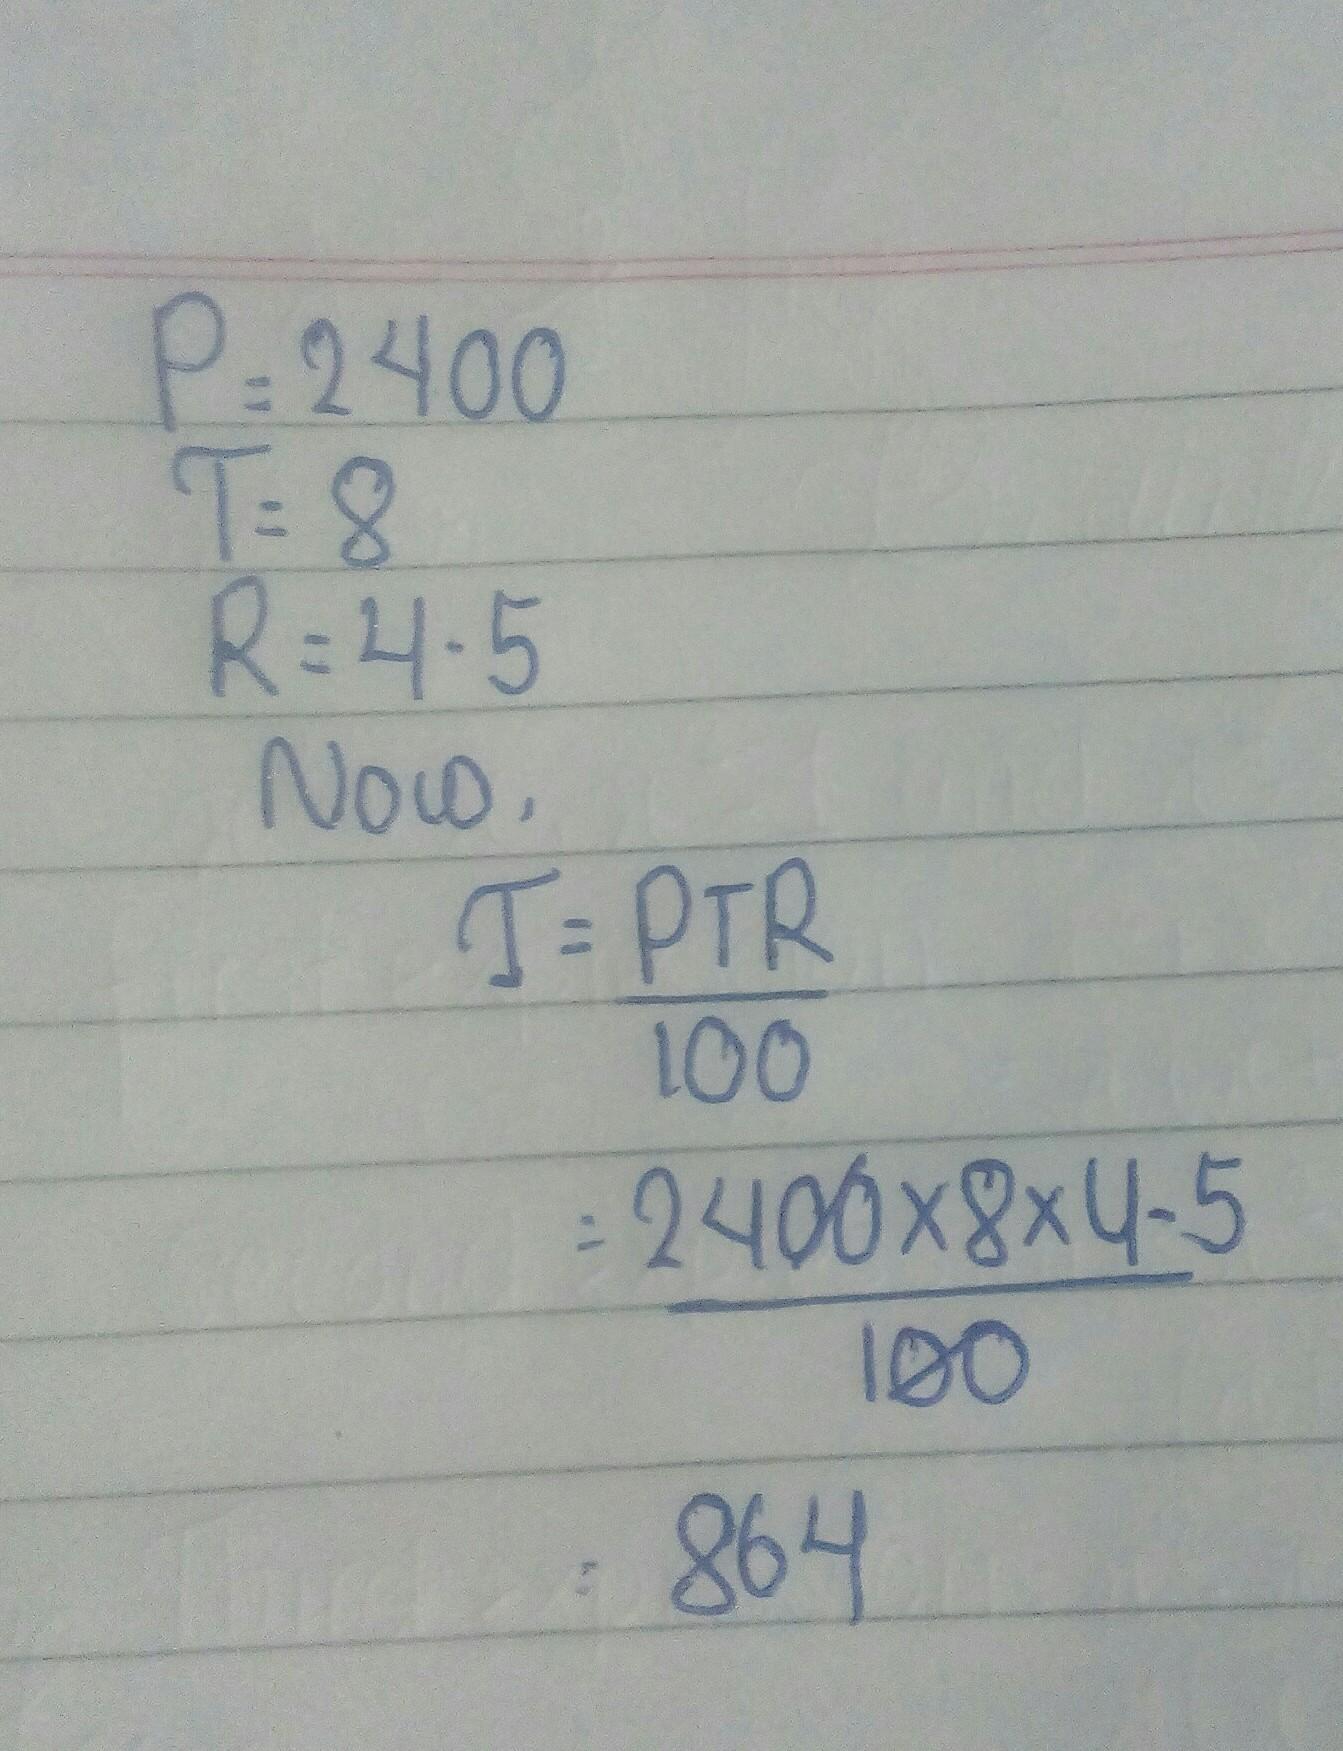 P=2400
T=8
R=4.5
Now,
I=PTR
100
=2400×8×4.5
100
=864